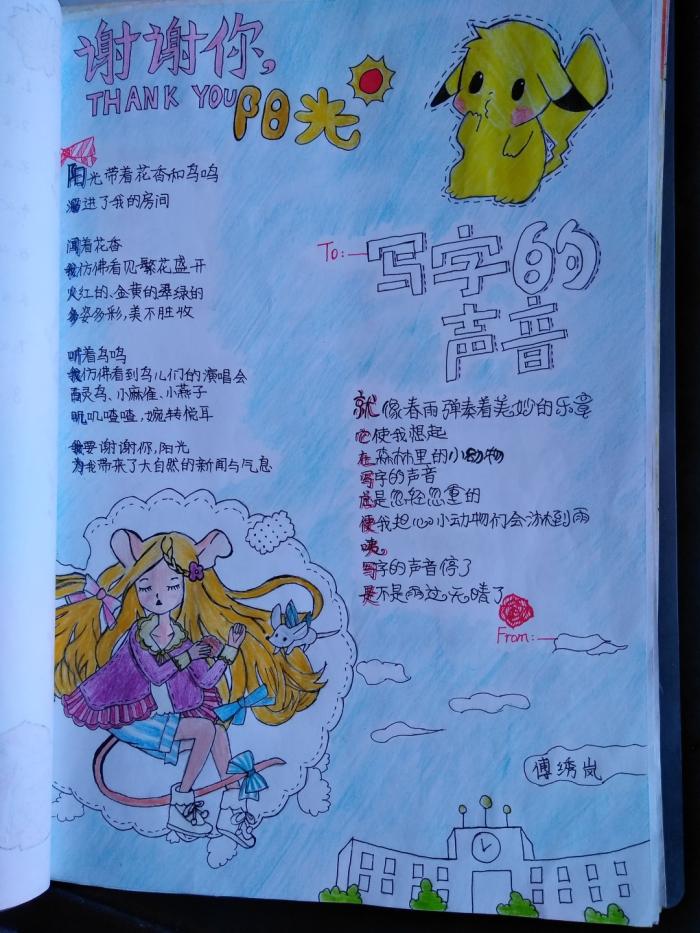 谢谢你,
THANK YOU
阳光
阳光带着花香和鸟鸣
溜进了我的房间
闻着花香
我仿佛看见繁花盛开
火红的、金黄的翠绿的
多姿多彩,美不胜收
听着鸟鸣
我仿佛看到鸟儿们的演唱会
百灵鸟、小麻雀、小燕子
叽叽喳喳,婉转悦耳
我要谢谢你,阳光
为我带来了大自然的新闻与气息
To:
写字的
声音
就像春雨弹奏着美妙的乐章
它使我想起
在森林里的小动物
写字的声音
总是忽轻忽重的
使我担心小动物们会淋到雨
咦。
写字的声音停了
是不是雨过天晴了
From:
傅绣岚